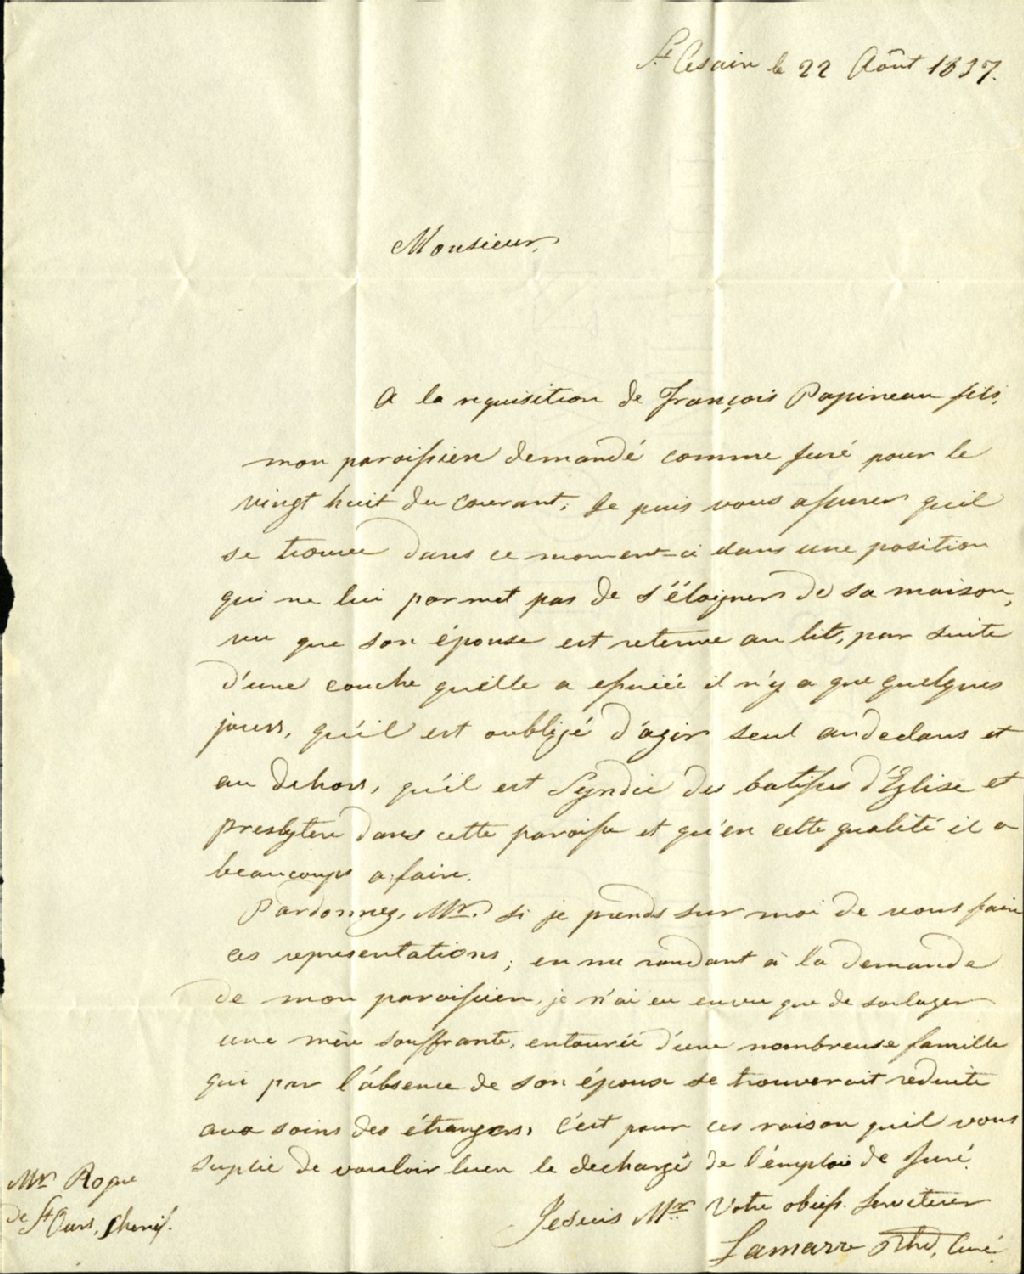 St Cesair le 22 Août 1837.
Monsieur
A la requisition de François Papineau fils,
mon paroissien demandé comme juré pour le
vingt huit du courant, Je puis vous assurer qu'il
se trouve dans ce moment-ci dans une position
qui ne lui permet pas de s'éloigner de sa maison,
vu que son épouse est retenue au lit, par suite
d'une couche qu'elle a essuiée il n'y a que quelques
jours, qu'il est oubligé d'agir seul au dedans et
au dehors, qu'il est Syndic des batisses d'Eglise et
presbytere dans cette paroisse et qu'en cette qualité il a
beaucoups a faire.
Pardonnez, Mr. si je prends sur moi de vous faire
ces representations; en me randant à la demande
de mon paroissien, je n'ai eu en vu que de soulager
une mère souffrante, entourée d'une nombreuse famille
qui par l'absence de son épouse se trouverait reduite
aux soins des étrangers, C'est pour ces raison qu'il vous
suplie de vouloir bien le dechargé de l'émploi de juré.
Je suis Mr. Votre obéiss. Serviteur
Lamarre Ptre, Curé
Mr Rogue
de St Ours, Sherif.